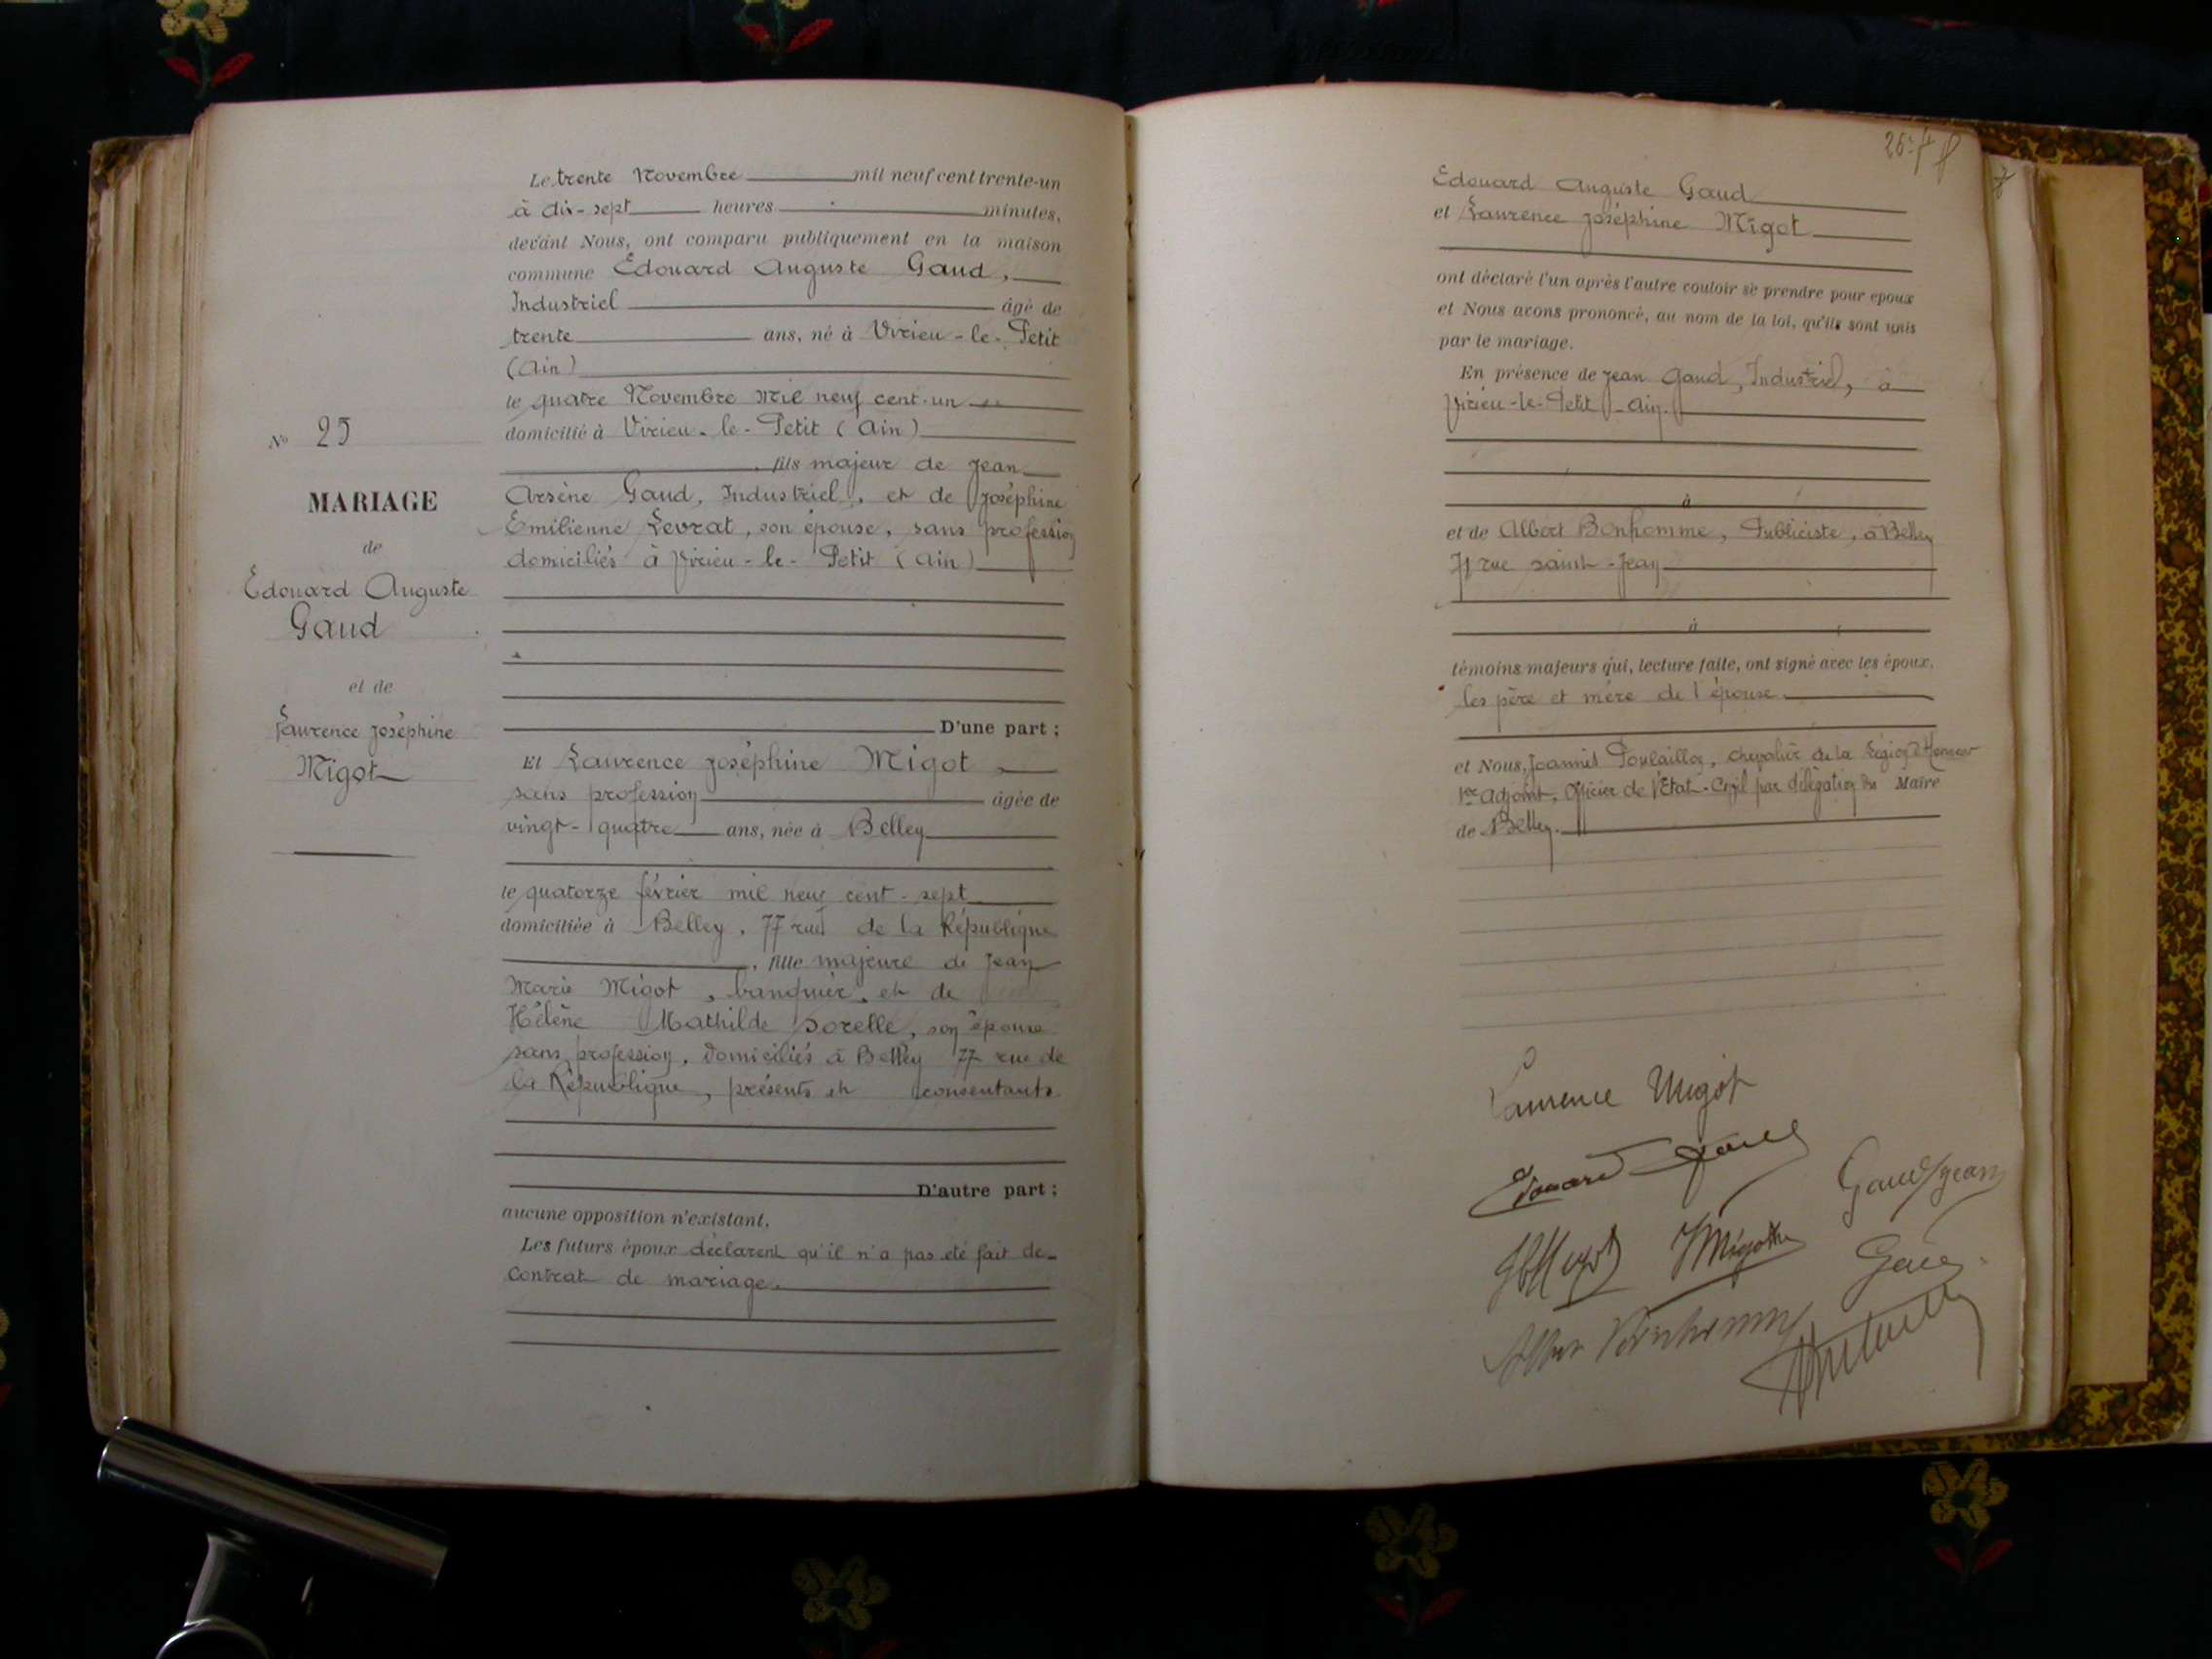 N° 25
MARIAGE
de
Edouard Auguste
Gaud
et de
Laurence Joséphine
Migot
Le trente Novembre mil neuf cent trente-un
à dix-sept heures minutes,
devant Nous, ont comparu publiquement en la maison
commune Edouard Auguste Gaud,
Industriel âgé de
trente ans, né à Virieu-le-Petit
(Ain)
le quatre Novembre mil neuf cent-un
domicilié à Virieu-le-Petit (Ain)
, fils majeur de Jean
Arsène Gaud, Industriel, et de Joséphine
Emilienne Levrat, son épouse, sans profession
domiciliés à Virieu-le-Petit (Ain)
D'une part ;
Et Laurence Joséphine Migot
sans profession âgée de
vingt-quatre ans, née à Belley
le quatorze février mil neuf cent-sept
domiciliée à Belley, 77 rue de la République
, fille majeure de Jean
Marie Migot, banquier, et de
Hélène Mathilde Sorelle, son épouse
sans profession, domiciliés à Belley 77 rue de
la République, présents et consentants
D'autre part ;
aucune opposition n'existant.
Les futurs époux déclarent qu'il n'a pas été fait de
contrat de mariage.
Edouard Auguste Gaud
et Laurence Joséphine Migot
ont déclaré l'un après l'autre vouloir se prendre pour époux
et Nous avons prononcé, au nom de la loi, qu'ils sont unis
par le mariage.
En présence de Jean Gaud, Industriel, à
Virieu-le-Petit-Ain.
à
et de Albert Bonhomme, Publiciste, à Belley
rue saint-Jean
à
témoins majeurs qui, lecture faite, ont signé avec les époux,
les père et mère de l'épouse
et Nous, Joannès chevalier de la Légion d'Honneur
1er Adjoint, Officier de l'Etat-Civil par délégation du Maire
de Belley.
Laurence Migot
Edouard Gaud
Gaud Jean
Migot
Gaud
Albert Bonhomme